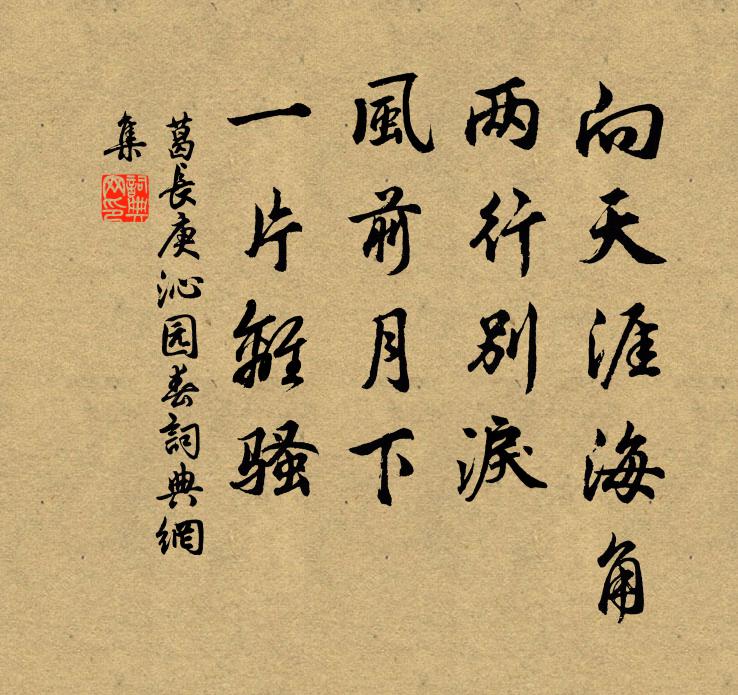 向天涯海角
两行别淚
風前月下
一片離騷
葛長庚沁园春詞典網
集
詞典
网印